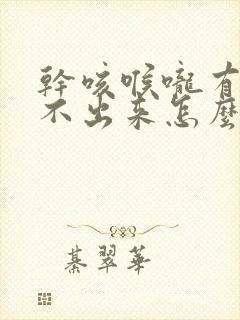 幹咳喉嚨有
不出来怎麼
綦翠華